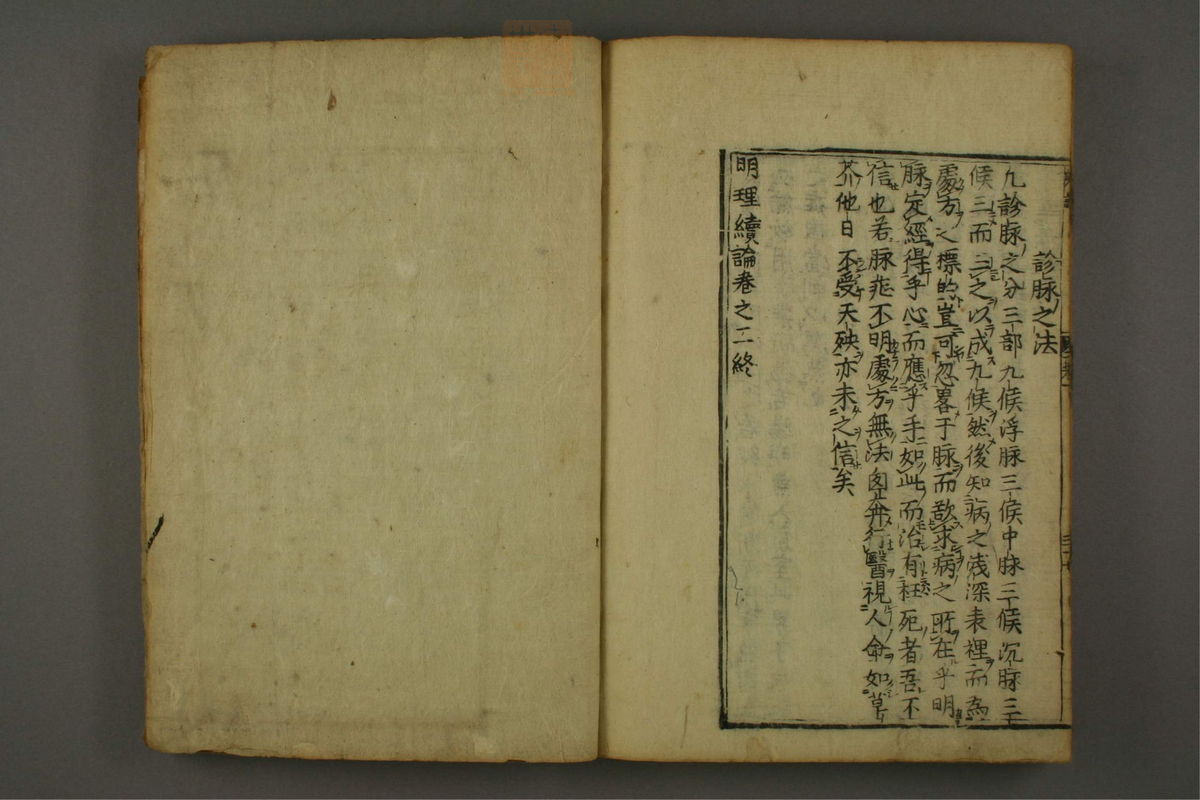 診脉之法
凢診脉之分三部九候浮脉三候中脉三候沉脉三
候三而三之以成九候然後知病之浅深表裡而為
處方之標的豈可忽畧于脉而欲求病之所在乎明
脉定經得乎心而應乎手如此而治有枉死者吾不
信也若脉非不明處方無法匃弄行醫視人命如草
芥他日不受天殃亦未之信矣
明理續論卷之二終